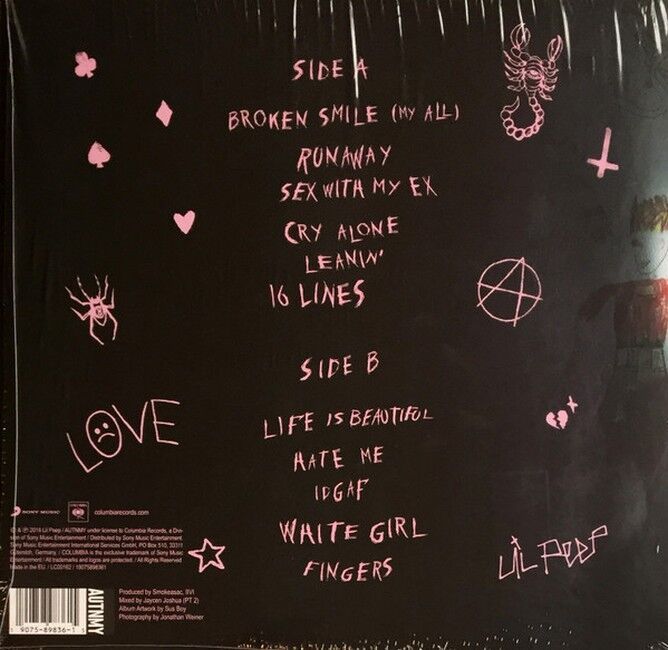 SIDE A
BROKEN SMILE (MY ALL)
RUNAWAY
SEX WITH MY EX
CRY ALONE
LEANIN'
16 LINES
SIDE B
LIFE IS BEAUTIFUL
HATE ME
IDGAF
WHITE GIRL
FINGERS
LOVE
LiL PEEP
SONY MUSIC
COLUMBIA
columbiarecords.com
& ℗ 2018 Lil Peep / AUTNMY under license to Columbia Records, a Divi-
of Sony Music Entertainment / Distributed by Sony Music Entertainment
Sony Music Entertainment International Services GmbH, PO Box 510, 33311
Gütersloh, Germany. / COLUMBIA is the exclusive trademark of Sony Music
Entertainment / All trademarks and logos are protected. / All Rights Reserved
Made in the EU. / LC00162 / 19075898361
AUTNMY
Produced by Smokeasac, IIVI
Mixed by Jaycen Joshua (PT 2)
Album Artwork by Sus Boy
Photography by Jonathan Weiner
9075-89836-1